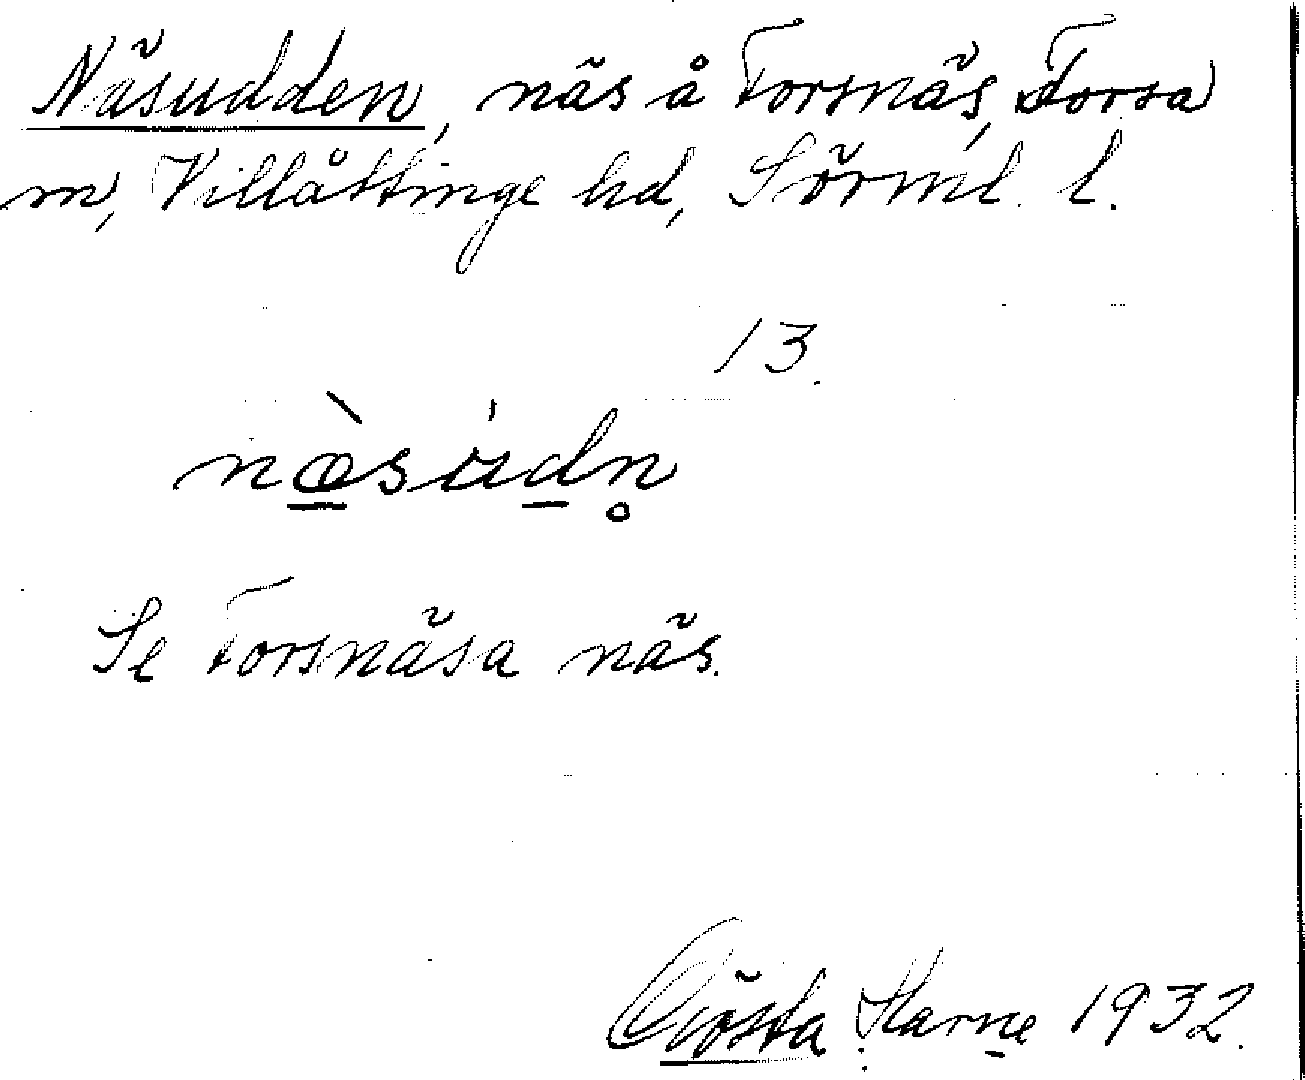 Näsudden, näs å Forsnäs, Forsa
sn, Villåttinge hd, Sörml. l.
13.
næ̀sùdn̥
Se Forsnäsa näs.
Gösta Harne 1932.